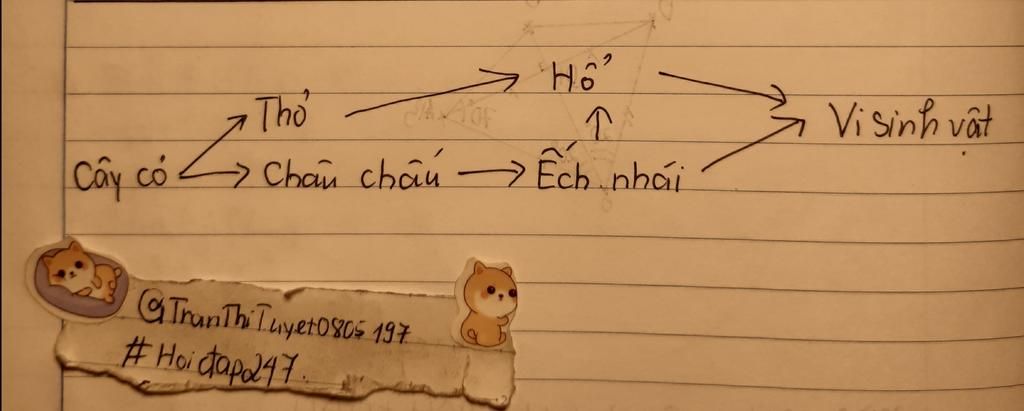 Thỏ → Hổ → Vi sinh vật
Cây cỏ → Châu chấu → Ếch nhái
@TranThiTuyet0805197
#Hoidap247.